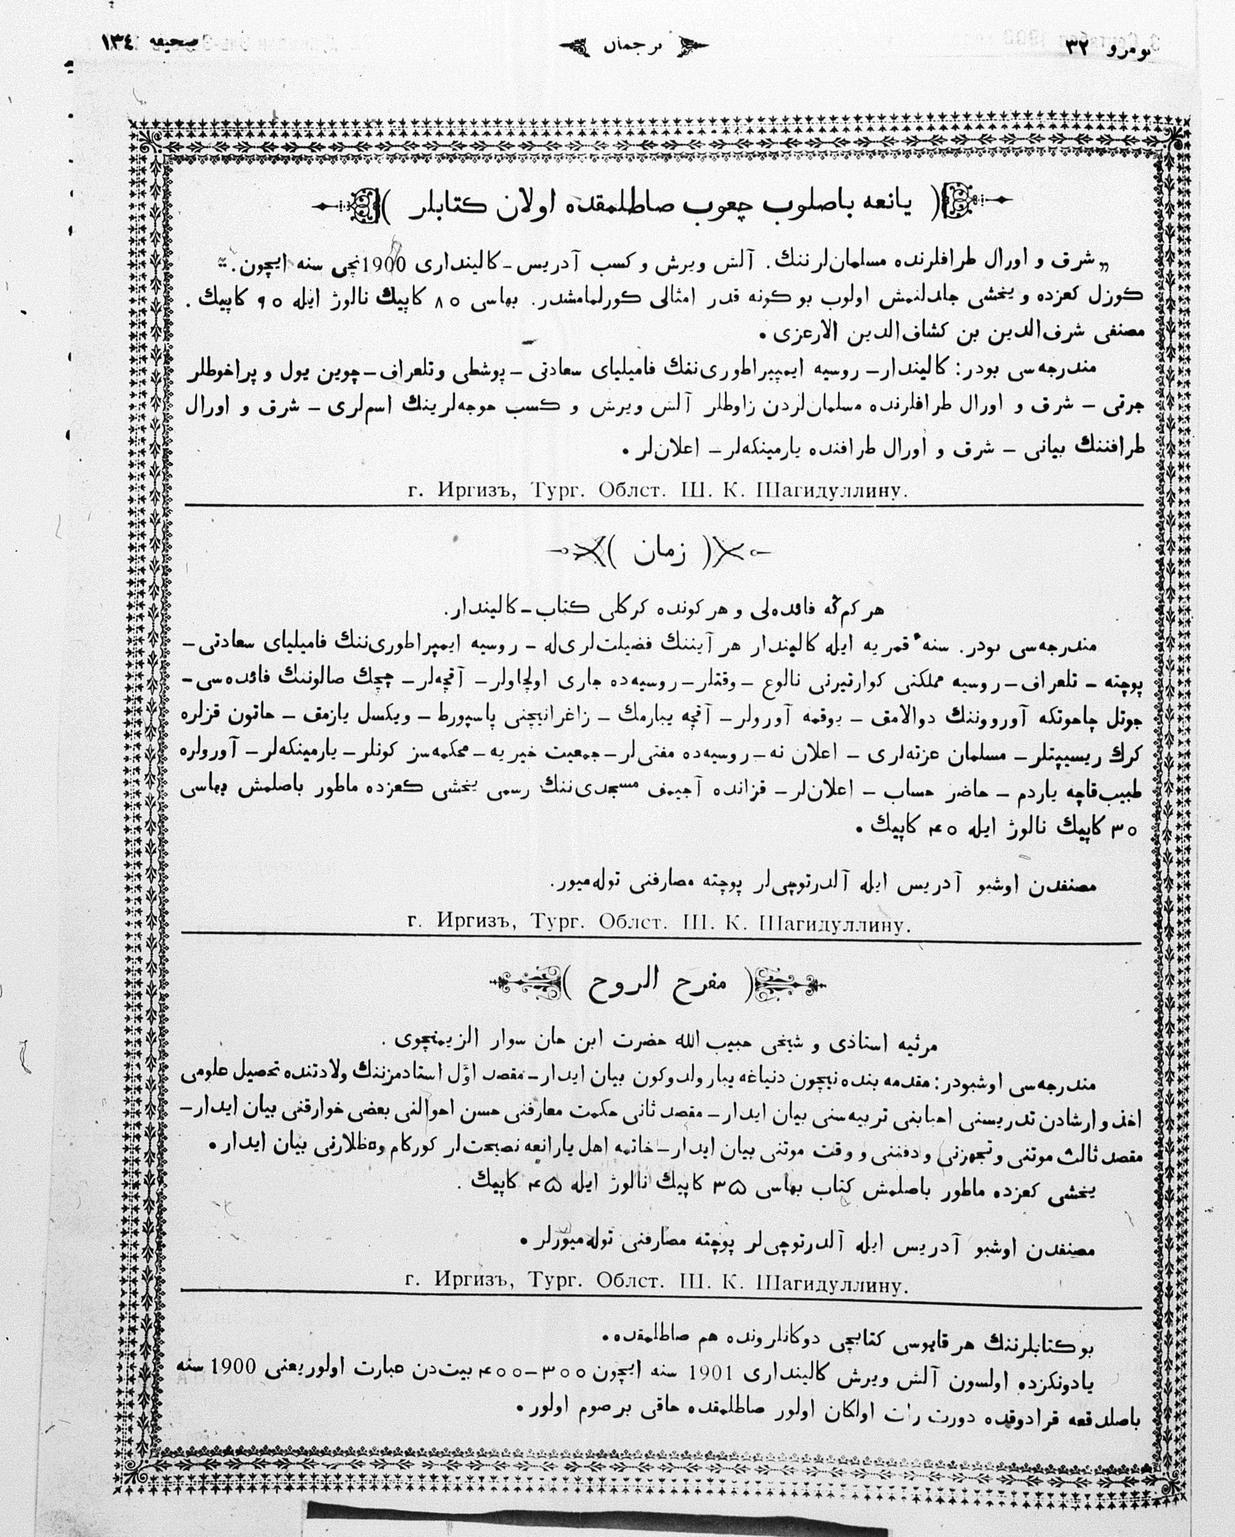 نومرو ٣٢
ترجمان
صحیفه ١٣٤
یانعه باصلوب چعوب صاطلمقده اولان کتابلر
„شرق و اورال طرافلرنده مسلمان‌لرننك. آلش ویرش و کسب آدریس ـ کالینداری 1900نچی سنه ایچون.“
کوزل کعزده و یخشی جلدلنمش اولوب بو کونه قدر امثالی کورلمامشدر. بهاسی ٨٠ کاپیك نالوژ ایله ٩٠ کاپیك.
مصنفی شرف‌الدین بن کشاف‌الدین الارعزی.
مندرجه‌سی بودر: کالیندار ـ روسیه ایمپیراطوری‌ننك فامیلیای سعادتی ـ پوشطی وتلعراف ـ چوین یول و پراخوطلر
جرتی ـ شرق و اورال طرافلرنده مسلمان‌لردن زاوطلر آلش ویرش و کسب خوجه‌لرینك اسم‌لری ـ شرق و اورال
طرافننك بیانی ـ شرق و اورال طرافنده یارمینکه‌لر ـ اعلان‌لر.
г. Иргизъ, Тург. Облст. Ш. К. Шагидуллину.
زمان
هر کم‌گه فائده‌لی و هر کونده کرکلی کتاب ـ کالیندار.
مندرجه‌سی بودر. سنهٔ قمریه ایله کالیندار هر آیننك فضیلت‌لری‌له ـ روسیه ایمپراطوری‌ننك فامیلیای سعادتی ـ
پوچته ـ تلعراف ـ روسیه مملکتی کوارتیرنی نالوع ـ وقتلر ـ روسیه‌ده جاری اولچاولر ـ آقچه‌لر ـ چچك صالوننك فائده‌سی ـ
جوتل چاحوتکه آورووننك دوالامق ـ یوقمه آورولر ـ آقچه یبارمك ـ زاغرانیچنی پاسپورط ـ ویکسل یازمق ـ حاتون قزلره
کرك ریسیپتلر ـ مسلمان عزته‌لری ـ اعلان نه ـ روسیه‌ده مفتی‌لر ـ جمعیت خیریه ـ محکمه‌سز کونلر ـ یارمینکه‌لر ـ آورولره
طبیب‌قاچه یاردم ـ حاضر حساب ـ اعلان‌لر ـ قزانده آجیمف مسجدی‌ننك رسمی یخشی کعزده ماطور باصلمش بهاسی
٣٠ کاپیك نالوژ ایله ۴٠ کاپیك.
مصنفدن اوشبو آدریس ایله آلدرتوچی‌لر پوچته مصارفنی توله‌میور.
г. Иргизъ, Тург. Облст. Ш. К. Шагидуллину.
مفرح الروح
مرثیه استاذی و شیخی حبیب الله حضرت ابن خان سوار الزیمنچوی.
مندرجه‌سی اوشبودر: مقدمه بنده نیچون دنیاغه یبارولدوکون بیان ایدار ـ مقصد اوّل استادمزننك ولادتنده تحصیل علومی
اخذ و ارشادن تدریسنی احبابنی تربیه‌سنی بیان ایدار ـ مقصد ثانی حکمت معارفنی حسن احوالنی بعضی خوارقنی بیان ایدار ـ
مقصد ثالث موتنی و تجهزنی و دفننی و وقت موتنی بیان ایدار ـ خاتمه اهل یارانعه نصیحت‌لر کورکام وعظلارنی بیان ایدار.
یخشی کعزده ماطور باصلمش کتاب بهاسی ٣۵ کاپیك نالوژ ایله ۴۵ کاپیك.
مصنفدن اوشبو آدریس ایله آلدرتوچی‌لر پوچته مصارفنی توله‌میورلر.
г. Иргизъ, Тург. Облст. Ш. К. Шагидуллину.
بو کتابلرننك هر قایوسی کتابچی دوکانلرونده هم صاطلمقده.
یادونکزده اولسون آلش ویرش کالینداری 1901 سنه ایچون ٣٠٠ ـ ۴٠٠ بیت‌دن عبارت اولور یعنی 1900 سنه
باصلدقعه قرادوقده دورت رات اولکان اولور صاطلمقده حاقی بر صوم اولور.